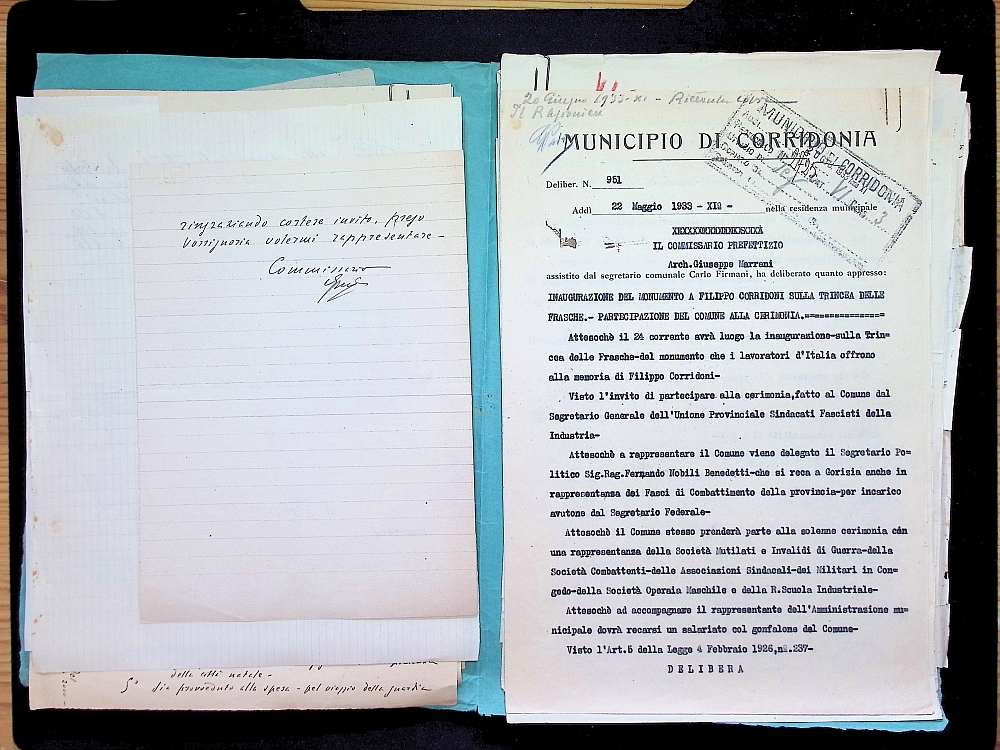 ringraziando cortese invito, prego
Vossignoria volermi rappresentare -
Commissario
della città natale -
5° Sia provveduto alla spesa - pel viaggio della guardia
20 Giugno 1933 - XI - Ricevuta
Il Ragioniere
MUNICIPIO DI CORRIDONIA
MUNICIPIO DI CORRIDONIA
Deliber. N. 951
Addì 22 Maggio 1933 - XIº - nella residenza municipale
IL COMMISSARIO PREFETTIZIO
Arch.Giuseppe Marrani
assistito dal segretario comunale Carlo Firmani, ha deliberato quanto appresso:
INAUGURAZIONE DEL MONUMENTO A FILIPPO CORRIDONI SULLA TRINCEA DELLE
FRASCHE.- PARTECIPAZIONE DEL COMUNE ALLA CERIMONIA.=============
Attesochè il 24 corrente avrà luogo la inaugurazione-sulla Trin=
cea delle Frasche-del monumento che i lavoratori d'Italia offrono
alla memoria di Filippo Corridoni-
Visto l'invito di partecipare alla cerimonia,fatto al Comune dal
Segretario Generale dell'Unione Provinciale Sindacati Fascisti della
Industria-
Attesochè a rappresentare il Comune viene delegato il Segretario Po=
litico Sig.Rag.Fernando Nobili Benedetti-che si reca a Gorizia anche in
rappresentanza dei Fasci di Combattimento della provincia-per incarico
avutone dal Segretario Federale-
Attesochè il Comune stesso prenderà parte alla solenne cerimonia cán
una rappresentanza della Società Mutilati e Invalidi di Guerra-della
Società Combattenti-delle Associazioni Sindacali-dei Militari in Con=
gedo-della Società Operaia Maschile e della R.Scuola Industriale-
Attesochè ad accompagnare il rappresentante dell'Amministrazione mu=
nicipale dovrà recarsi un salariato col gonfalone del Comune-
Visto l'Art.5 della Legge 4 Febbraio 1926,nº.237-
DELIBERA